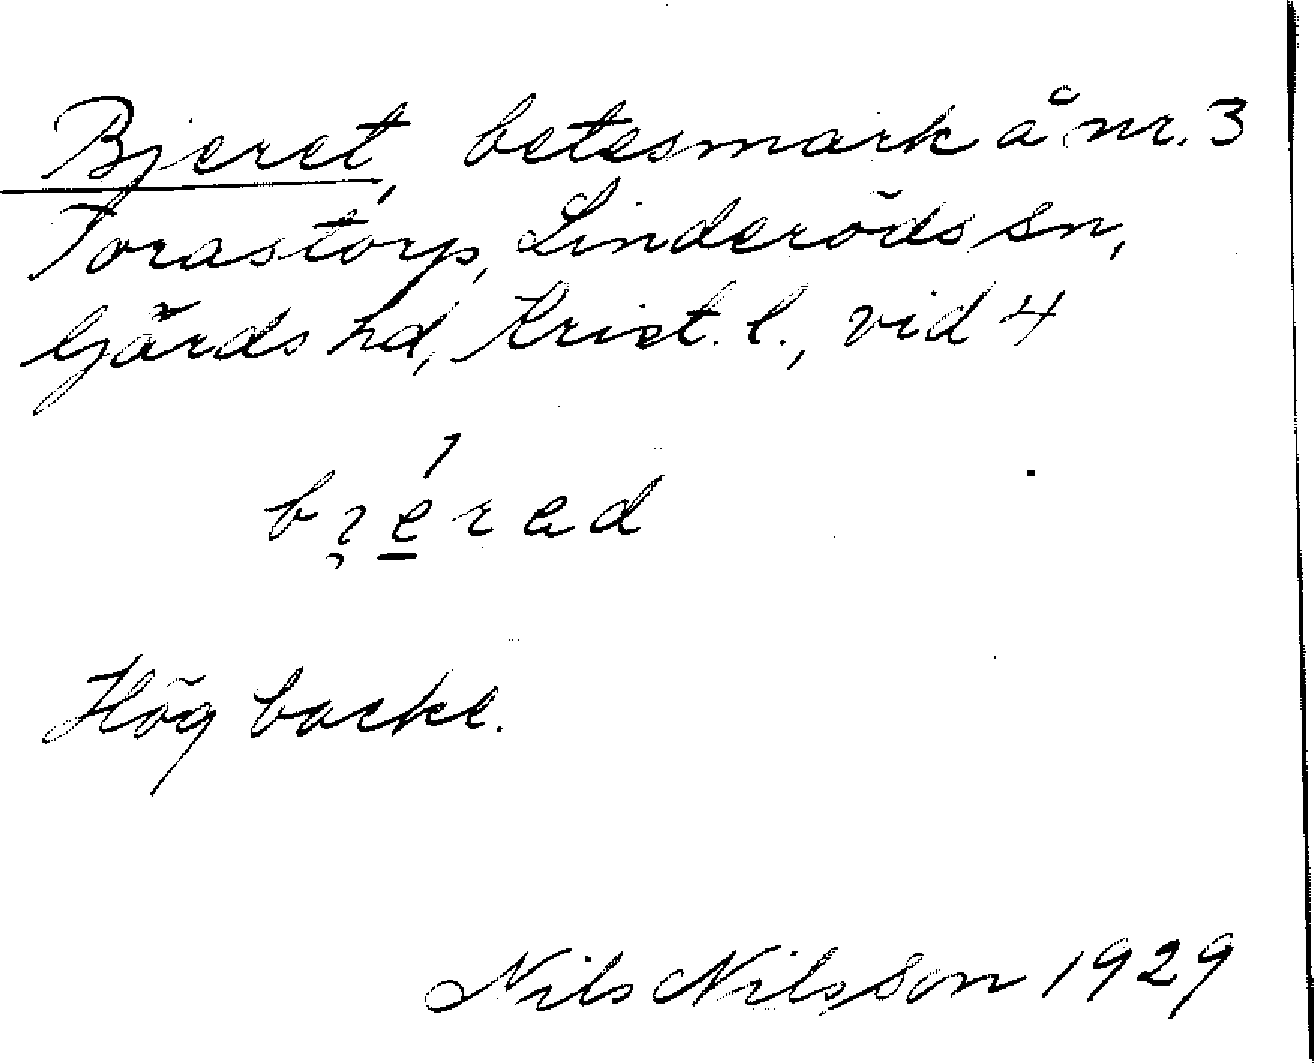 Bjeret, betesmark å nr. 3
Torastorp, Linderöds sn,
Gärds hd, Krist. l., vid 4
Hög backe.
Nils Nilsson 1929